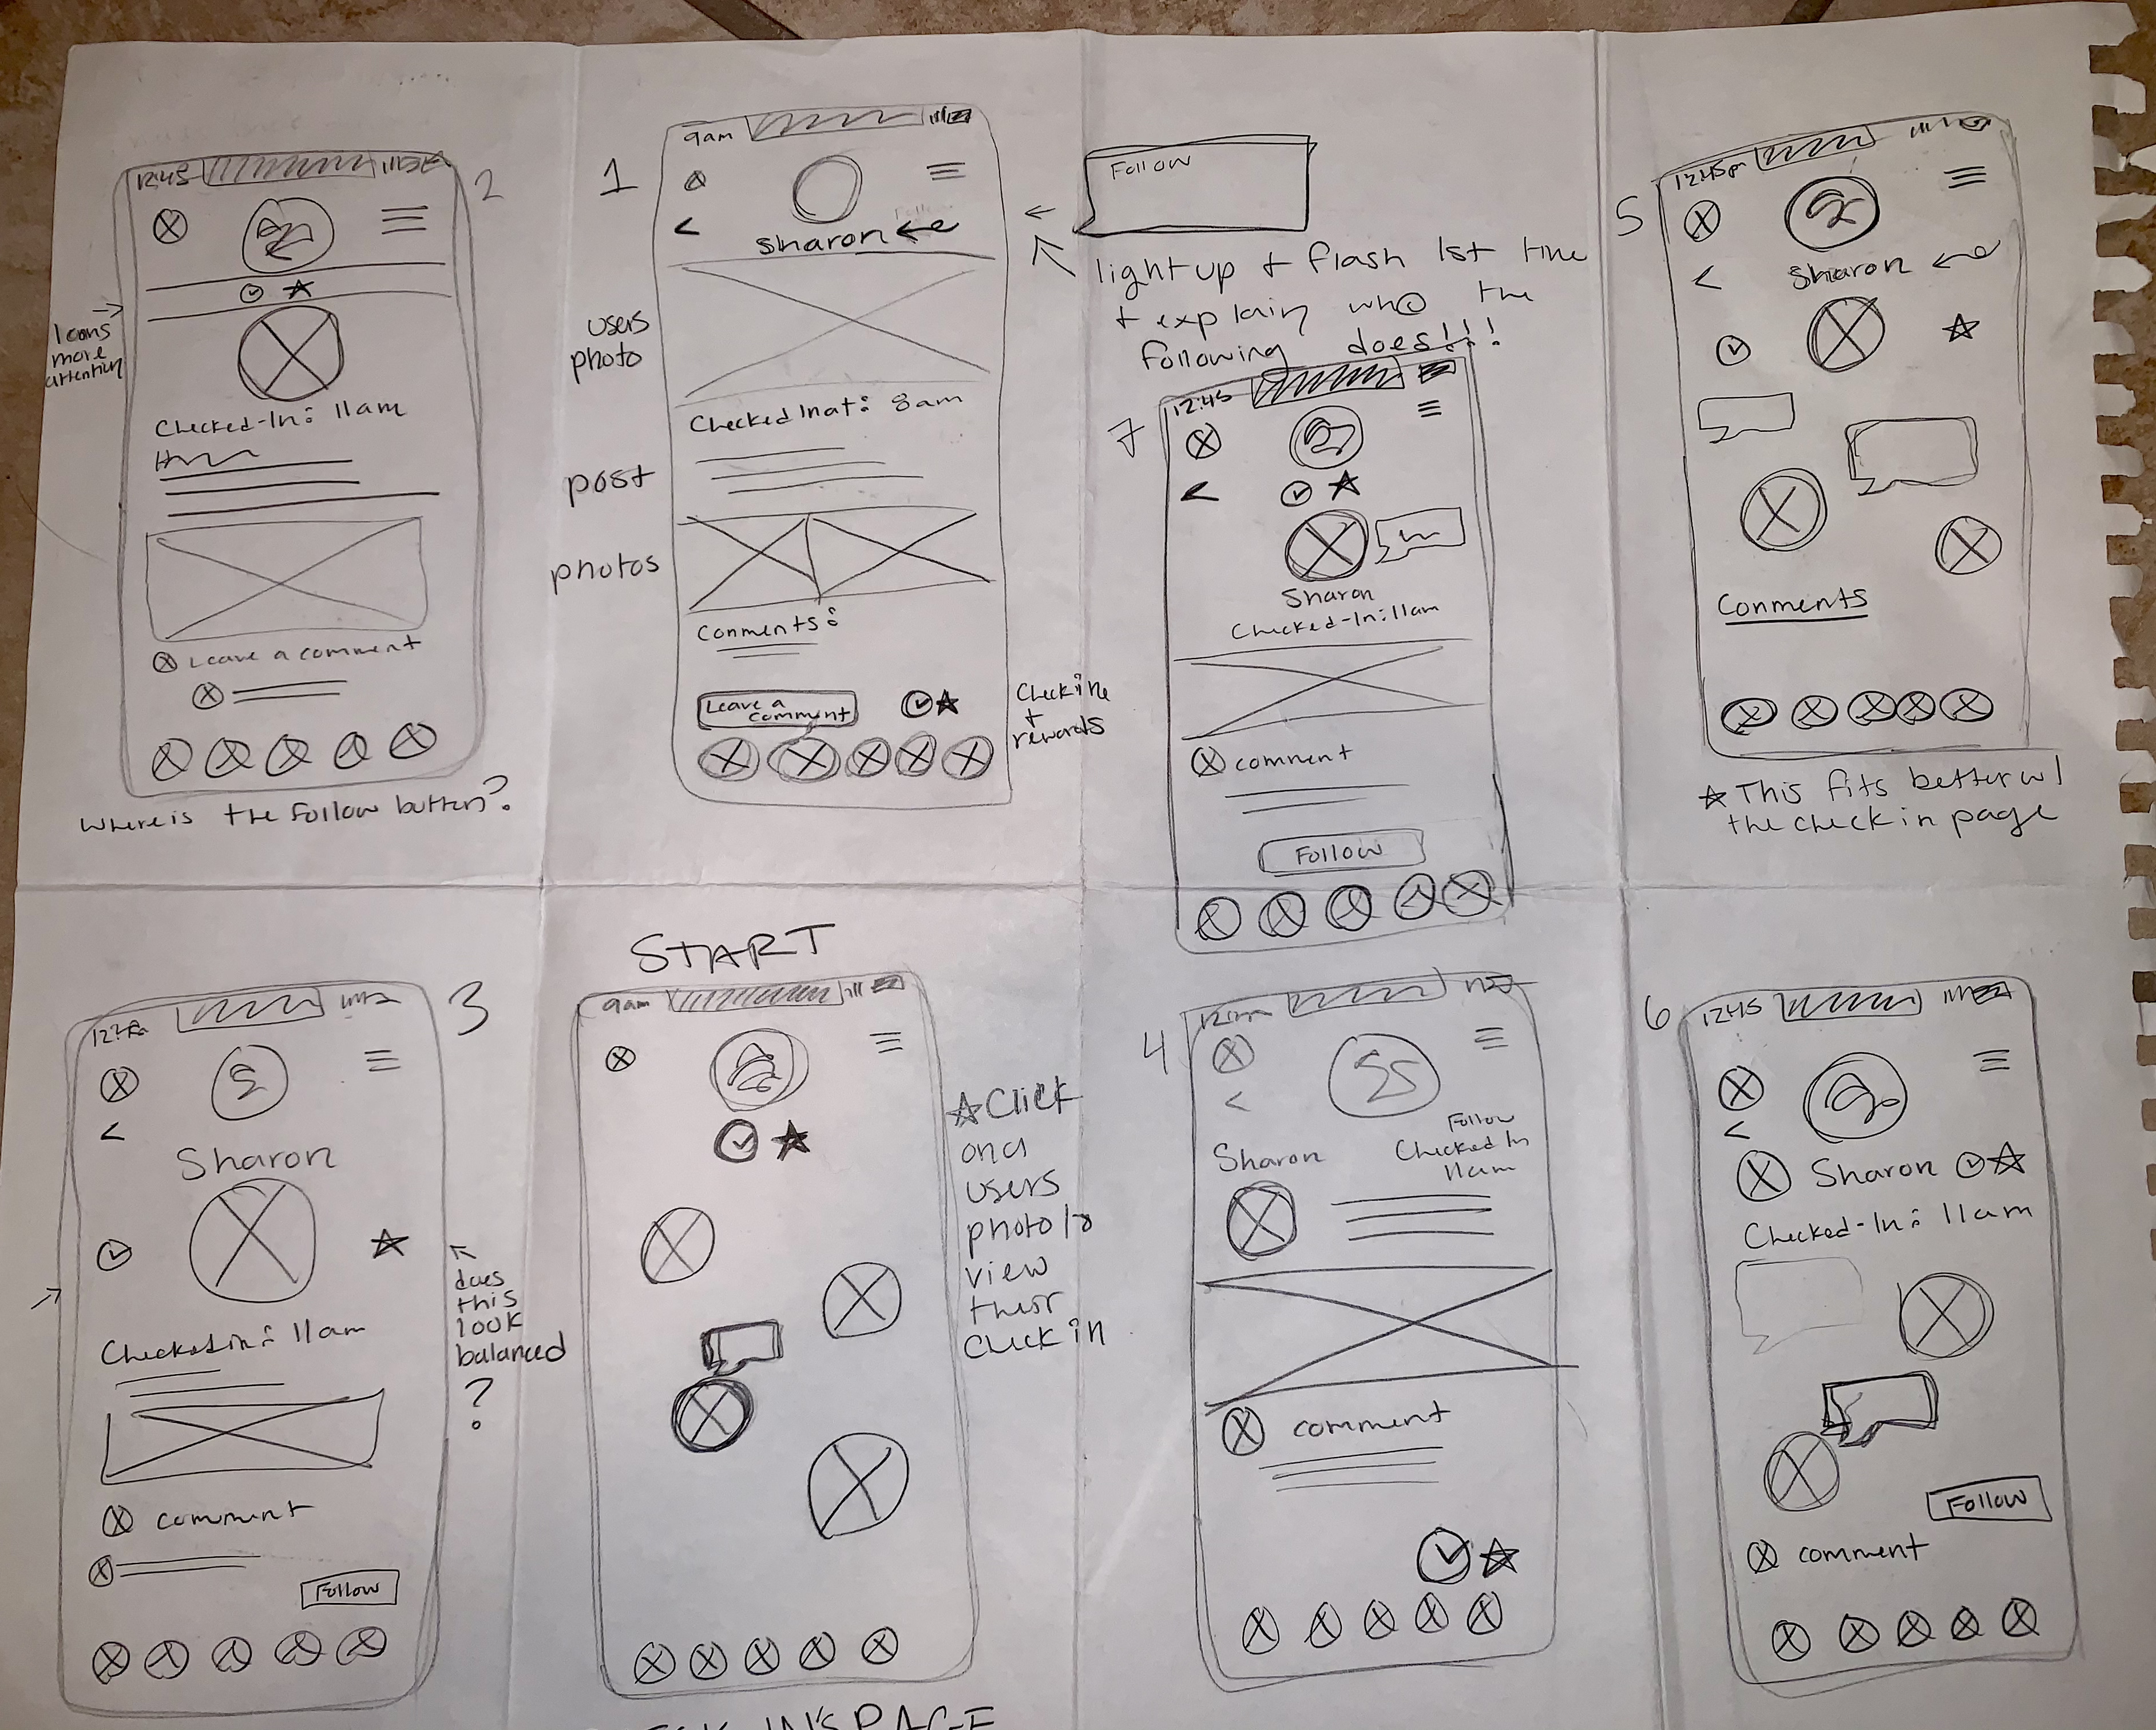 2
12:45
Icons
more
attention
Checked-In: 11am
Leave a comment
Where is the Follow button?
1
9am
Sharon
users
photo
Checked In at: 8am
post
photos
Comments:
Leave a
comment
Check ins
+
rewards
Follow
light up + flash 1st time
+ explain what the
following does!!!
7
12:45
Sharon
Checked-In: 11am
comment
Follow
5
12:45pm
Sharon
Comments
This fits better w/
the check in page
3
Sharon
Checked in: 11am
comment
Follow
does
this
look
balanced
?
START
9am
Click
on a
users
photo to
view
their
check in
4
Follow
Sharon
Checked In
11am
comment
6
12:45
Sharon
Checked-In: 11am
Follow
comment
IN'S PAGE